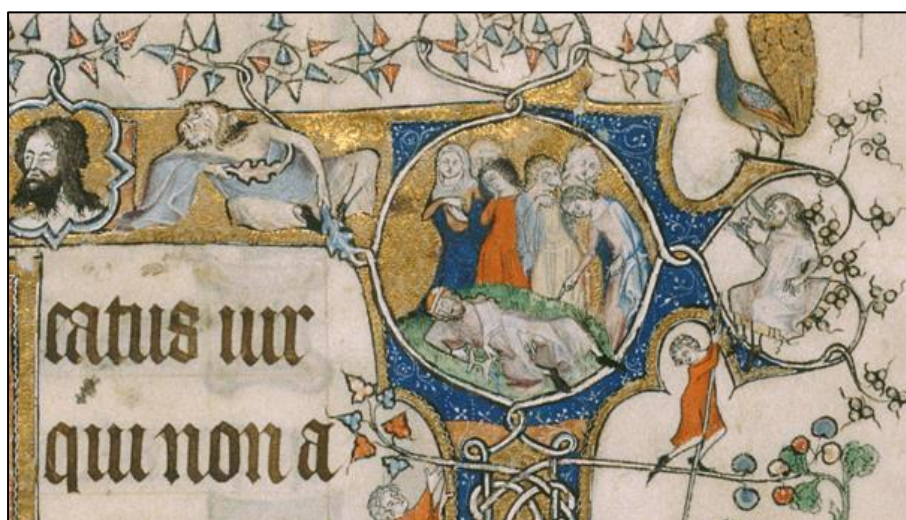 eatus uir
qui non a